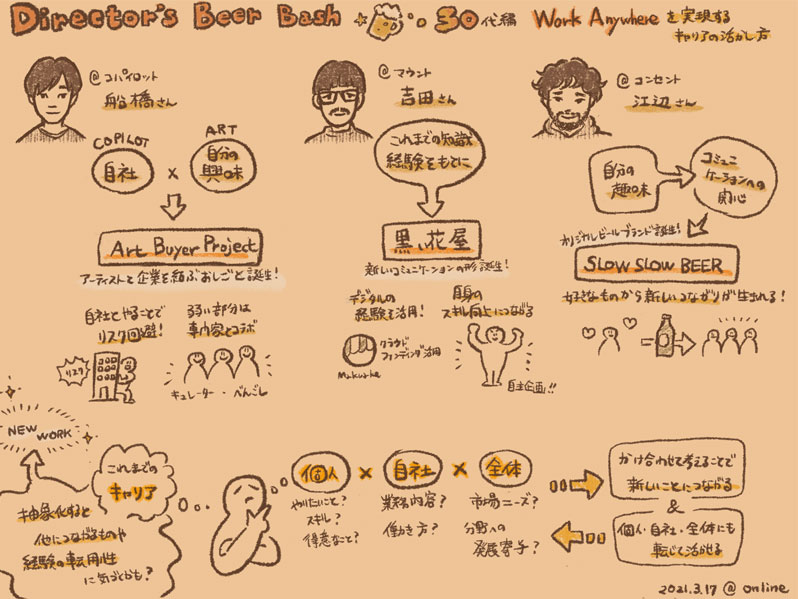 Director's Beer Bash 30代編 Work Anywhereを実現する
キャリアの活かし方
@コパイロット
船橋さん
COPILOT
自社
×
ART
自分の
興味
Art Buyer Project
アーティストと企業を結ぶおしごと誕生!
自社とやることで
リスク回避!
弱い部分は
専門家とコラボ
リスク
キュレーター・べんごし
@マウント
吉田さん
これまでの知識
経験をもとに
黒い花屋
新しいコミュニケーションの形誕生!
デジタルの
経験も活用!
自身の
スキル向上につながる
Makuake
クラウド
ファンディング活用
自主企画!!
@コンセント
江辺さん
自分の
趣味
コミュニ
ケーションへの
関心
オリジナルビールブランド誕生!
SLOW SLOW BEER
好きなものから新しいつながりが生まれる!
=
NEW WORK
これまでの
キャリア
抽象化すると
他につながるものや
経験の転用性
に気づくかも?
個人 × 自社 × 全体
やりたいこと?
スキル?
得意なこと?
業務内容?
働き方?
市場ニーズ?
分野への
発展寄与?
かけ合わせて考えることで
新しいことにつながる
&
個人・自社・全体にも
転じて活かせる
2021.3.17 @ online